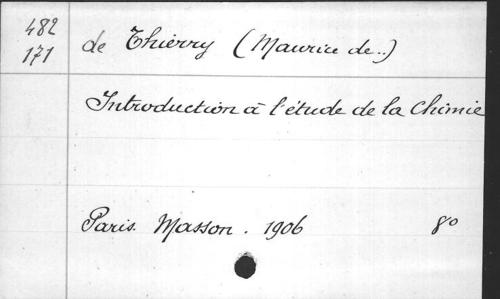 482
171
de Thierry (Maurice de..)
Introduction à l'étude de la Chimie
Paris. Masson. 1906 8º